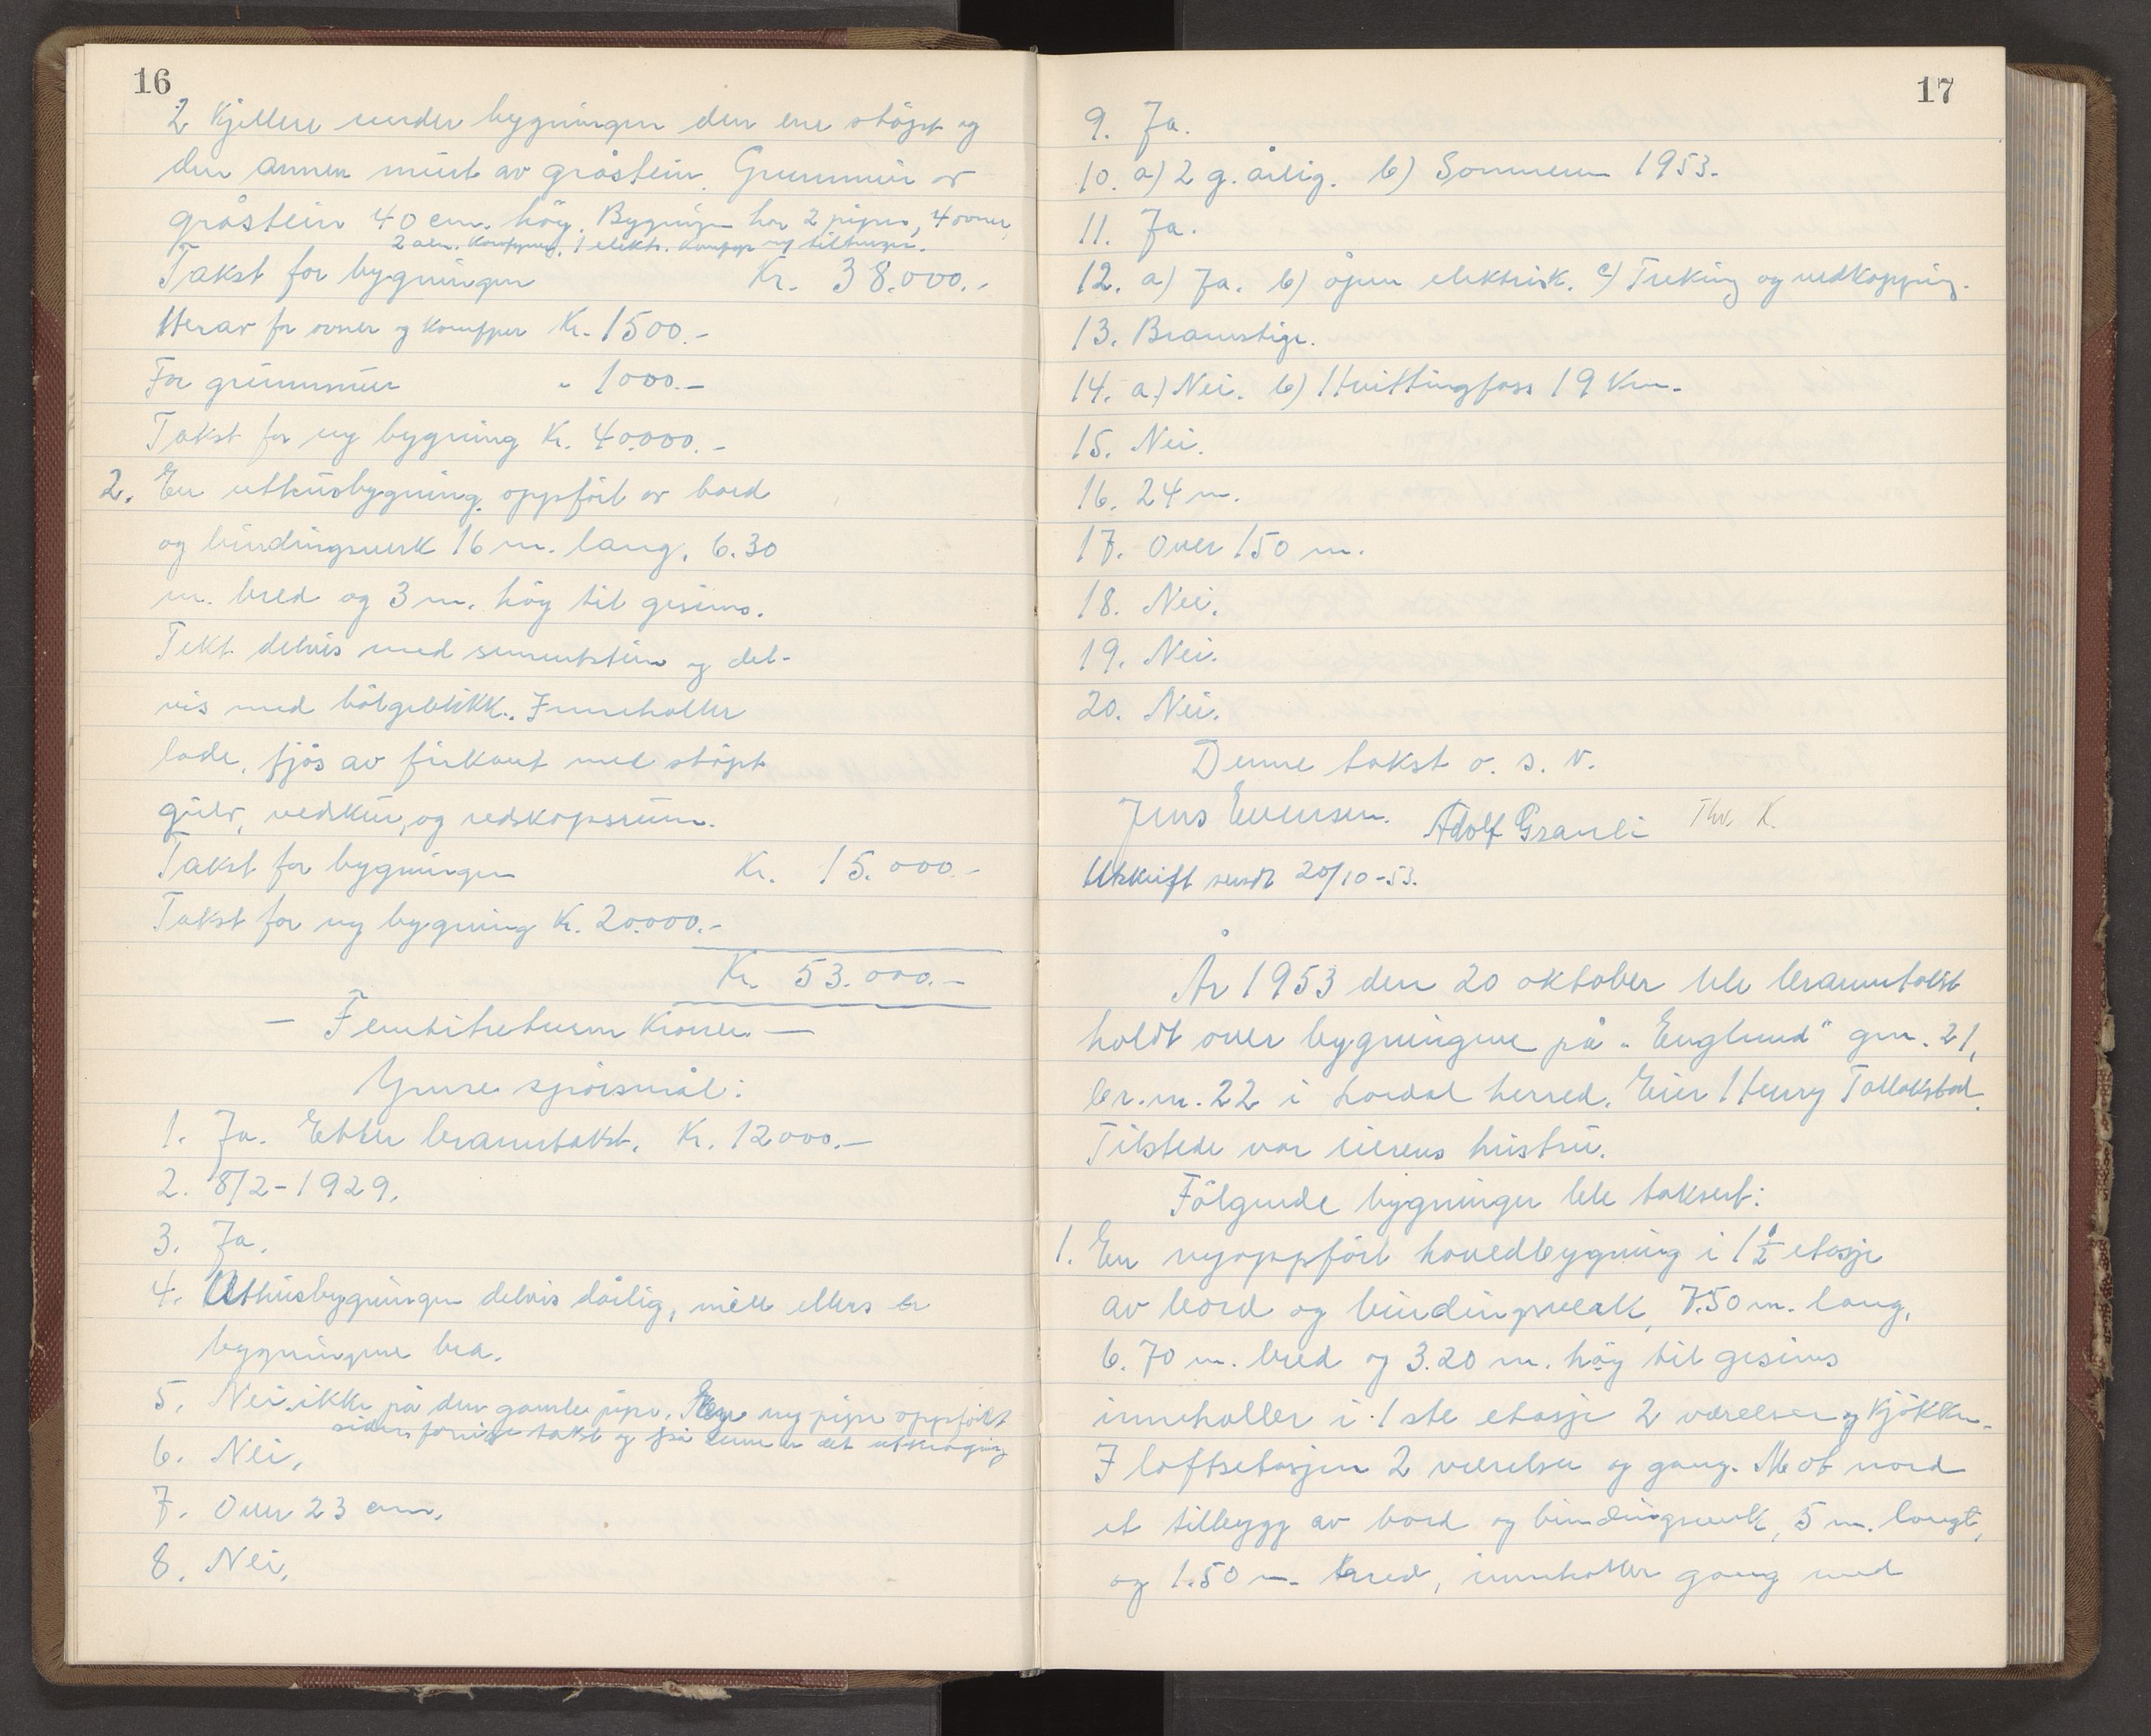 16
2 Kjellere under bygningen den ene støpt og
den annen murt av gråstein. Grunnmur av
gråstein 40 cm. høy. Bygningen har 2 piper, 4 ovner,
2 alm. komfyrer, 1 elektr. komfyr og
Takst for bygningen Kr. 38.000.-
Herav for ovner og komfyrer Kr. 1500.-
For grunnmur " 1000.-
Takst for ny bygning Kr. 40.000.-
2. En uthusbygning oppført av bord
og bindingsverk 16 m. lang, 6.30
m. bred og 3 m. høy til gesims.
Tekt delvis med sementstein og del-
vis med bølgeblikk. Inneholder
låve, fjøs av firkant med støpt
gulv, vedskur, og redskapsrum.
Takst for bygningen Kr. 15.000.-
Takst for ny bygning Kr. 20.000.-
Kr. 53.000.-
- Femtitretusen Kroner. -
Ymse spörsmål:
1. Ja. Etter branntakst. Kr. 12000.-
2. 8/2-1929.
3. Ja.
4. Uthusbygningen delvis dårlig, men ellers er
bygningene bra.
5. Nei. ikke på den gamle pipe. ny pipe oppført
siden forrige takst og på denne er det utkraging
6. Nei.
7. Over 23 cm.
8. Nei.
17
9. Ja.
10. a) 2 g. årlig. b) Sommeren 1953.
11. Ja.
12. a) Ja. b) åpen elektrisk. c) Treking og vedkapping.
13. Brannstige.
14. a) Nei. b) Hvittingfoss 19 Km.
15. Nei.
16. 24 m.
17. Over 150 m.
18. Nei.
19. Nei.
20. Nei.
Denne takst o. s. v.
Jens Evensen. Adolf Granli Thv. K.
Utskrift sendt 20/10-53.
År 1953 den 20 oktober ble branntakst
holdt over bygningene på "Englund" gn. 21,
br. n. 22 i Lardal herred. Eier Henry Tollakstad.
Tilstede var eierens hustru.
Følgende bygninger ble taksert:
1. En nyoppført hovedbygning i 1 1/2 etasje
av bord og bindingsverk, 7.50 m. lang,
6.70 m. bred og 3.20 m. høy til gesims
inneholder i 1ste etasje 2 værelser og kjøkken.
I loftsetasjen 2 værelser og gang. Mot nord
et tilbygg av bord og bindingsverk, 5 m. langt,
og 1.50 m. bred, inneholder gang med